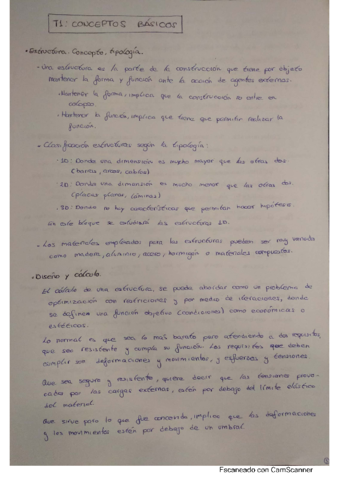 T1: CONCEPTOS BÁSICOS
• Estructura. Concepto. Tipología.
- Una estructura es la parte de la construcción que tiene por objeto
mantener la forma y función ante la acción de agentes externos.
· Mantener la forma, implica que la construcción no entre en
colapso
· Mantener la función, implica que tiene que permitir realizar la
función.
- Clasificación estructuras según la tipología:
· 1D: Donde una dimensión es mucho mayor que las otras dos
(barras, arcos, cables)
· 2D: Donde una dimensión es mucho menor que las otras dos
(placas planas, láminas)
· 3D: Donde no hay características que permitan hacer hipótesis
en este bloque se estudiarán las estructuras 1D.
- Los materiales empleados para las estructuras pueden ser muy variados
como madera, aluminio, acero, hormigón o materiales compuestos.
• Diseño y cálculo.
El cálculo de una estructura, se puede abordar como un problema de
optimización con restricciones y por medio de iteraciones, donde
se define una función objetivo (condiciones) como económicas o
estéticas.
Lo normal es que sea lo más barato pero atendiendo a dos requisitos,
que sea resistente y cumpla su función. Los requisitos que deben
cumplir son deformaciones y movimientos, y esfuerzos y tensiones.
Que sea segura y resistente, quiere decir que las tensiones provo-
cadas por las cargas externas, estén por debajo del límite elástico
del material.
Que sirva para lo que fue concebida, implica que las deformaciones
y los movimientos estén por debajo de un umbral.
Escaneado con CamScanner